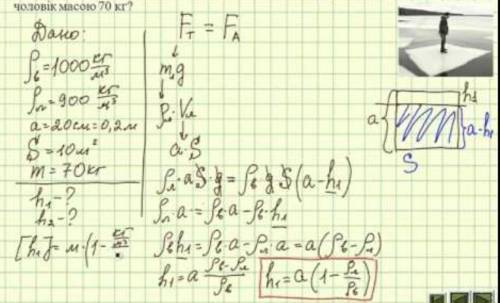 чоловік масою 70 кг?
Дано:
ρв = 1000 кг/м³
ρл = 900 кг/м³
a = 20см = 0,2м
S = 10м²
m = 70кг
h₁ - ?
h₂ - ?
[h₁] = м·(1 - кг/м³
Fт = Fа
mg
ρл·Vл
a·S
ρл·a·S·g = ρв·g·S(a - h₁)
ρл·a = ρв·a - ρв·h₁
ρвh₁ = ρв·a - ρл·a = a(ρв - ρл)
h₁ = a (ρв - ρл)/ρв
h₁ = a(1 - ρл/ρв)
a
h₁
a-h₁
S